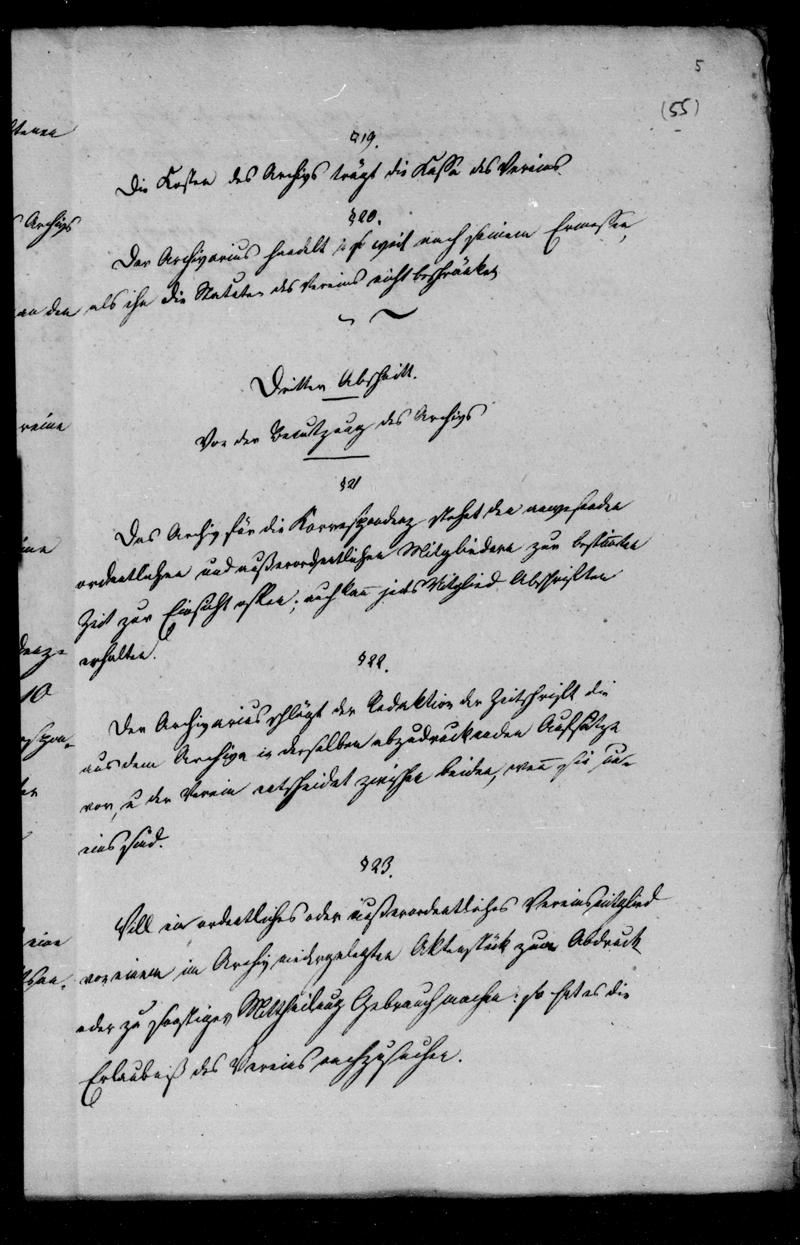 5
(55)
§ 19.
Die Kosten des Archivs trägt die Kasse des Vereins.
§ 20.
Der Archivarius handelt so weit nach seinem Ermessen,
als ihn die Statuten des Vereins nicht beschränken
Dritter Abschnitt.
Von der Benutzung des Archivs
§ 21
Das Archiv für die Korrespondenz stehet den anwesenden
ordentlichen und außerordentlichen Mitgliedern zur bestimten
Zeit zur Einsicht offen; auch kan jedes Mitglied Abschriften
erhalten.
§ 22.
Der Archivarius schlägt der Redaktion der Zeitschrift die
aus dem Archive in derselben abzudruckenden Aufsätze
vor, u der Verein entscheidet zwischen beiden, wen sie un-
eins sind.
§ 23.
Will ein ordentliches oder außerordentliches Vereinsmitglied
von einem im Archiv niedergelegten Aktenstük zum Abdruck
oder zu sonstiger Mittheilung Gebrauch machen: so hat es die
Erlaubniß des Vereins nachzusuchen.
Archivs
an den
10